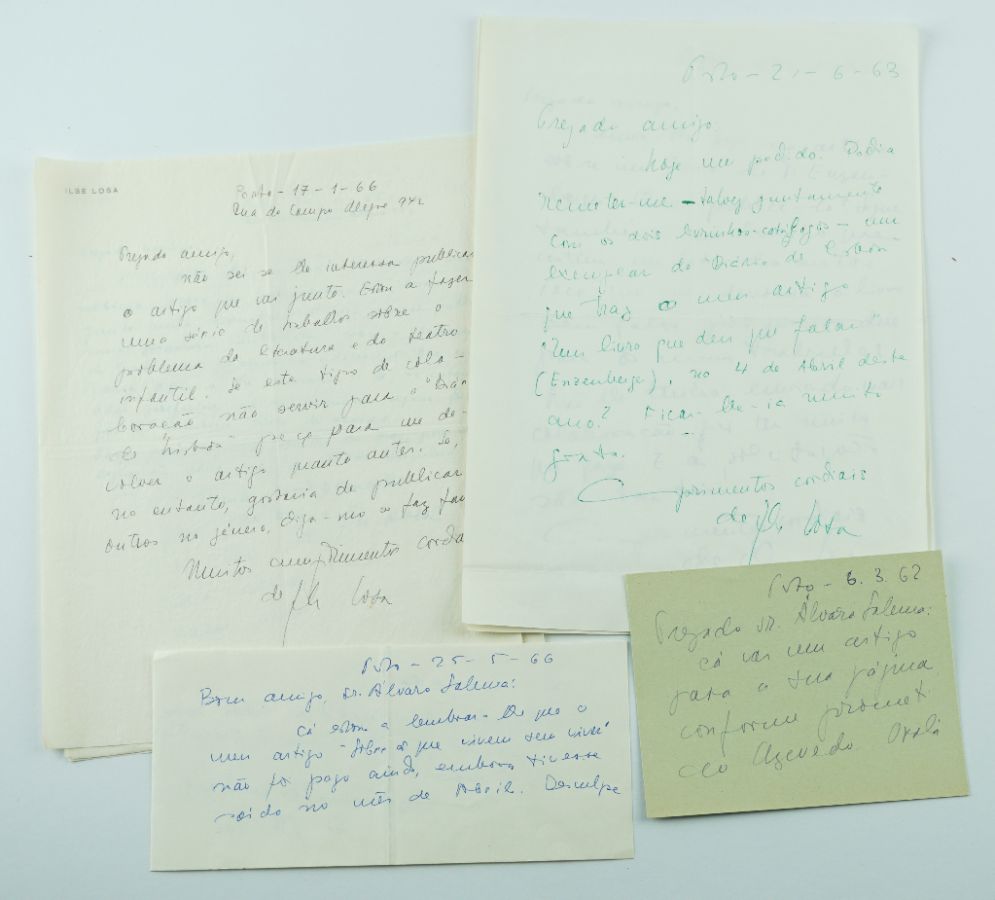 ILSE LOSA
Porto - 17-1-66
Rua do Campo Alegre
Prezado amigo,
não sei se lhe interessa publicar
o artigo que vai junto. Estou a fazer
uma série de trabalhos sobre o
problema da literatura e do teatro
infantil. Se este tipo de cola-
boração não servir para o "Diá-
de Lisboa" peço para me de-
volver o artigo quanto antes. Se,
no entanto, gostaria de publicar
outros no género, diga-mo
Muitos cumprimentos
da Ilse Losa
Porto - 21-6-63
Prezado amigo:
hoje um pedido. Podia
remeter-me - talvez juntamente
com os dois livrinhos-catálogos - um
exemplar do "Diário de Lisboa"
que traz o meu artigo
"Um livro que deu que falar"
(Enzensberger), no 4 de Abril deste
ano? Ficar-lhe-ia muito
grata.
Cumprimentos cordiais
da Ilse Losa
Porto - 25-5-66
Bom amigo, Dr. Álvaro Salema:
Cá estou a lembrar-lhe que o
meu artigo "Sobre os que vivem sem viver"
não foi pago ainda, embora tivesse
saído no mês de Abril. Desculpe
Porto - 6.3.62
Prezado Dr. Álvaro Salema:
cá vai um artigo
para a sua página
conforme prometi
ao Azevedo